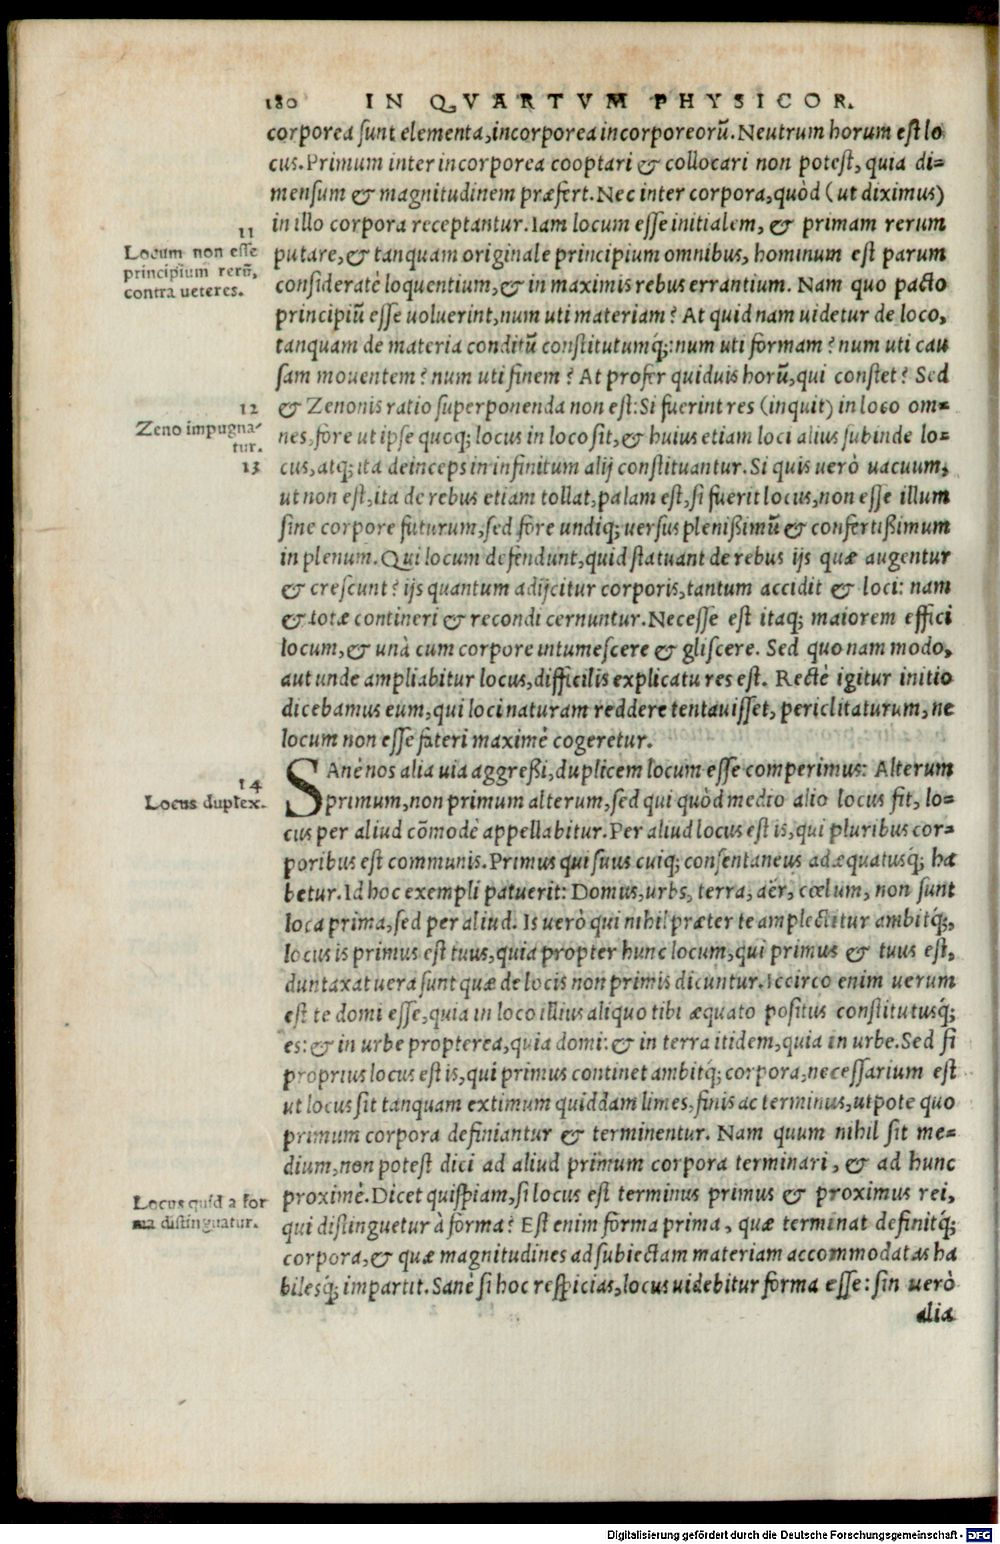 180 IN QVARTVM PHYSICOR.
corporea sunt elementa, incorporea incorporeorũ. Neutrum horum est lo
cus. Primum inter incorporea cooptari & collocari non potest, quia di=
mensum & magnitudinem præfert. Nec inter corpora, quòd (ut diximus)
in illo corpora receptantur. Iam locum esse initialem, & primam rerum
11
Locum non esse
principium rerũ,
contra ueteres.
putare, & tanquam originale principium omnibus, hominum est parum
consideratè loquentium, & in maximis rebus errantium. Nam quo pacto
principiũ esse uoluerint, num uti materiam? At quid nam uidetur de loco,
tanquam de materia conditũ constitutumq́;: num uti formam? num uti cau
sam mouentem? num uti finem? At profer quiduis horũ, qui constet? Sed
12
Zeno impugna-
tur.
13
& Zenonis ratio superponenda non est: Si fuerint res (inquit) in loco om=
nes, fore ut ipse quoq; locus in loco sit, & huius etiam loci alius subinde lo=
cus, atq; ita deinceps in infinitum alij constituantur. Si quis uerò uacuum,
ut non est, ita de rebus etiam tollat, palam est, si fuerit locus, non esse illum
sine corpore futurum, sed fore undiq; uersus plenißimũ & confertißimum
in plenum. Qui locum defendunt, quid statuant de rebus ijs quæ augentur
& crescunt? ijs quantum adijcitur corporis, tantum accidit & loci: nam
& totæ contineri & recondi cernuntur. Necesse est itaq; maiorem effici
locum, & unà cum corpore intumescere & gliscere. Sed quonam modo,
aut unde ampliabitur locus, difficilis explicatu res est. Rectè igitur initio
dicebamus eum, qui loci naturam reddere tentauisset, periclitaturum, ne
locum non esse fateri maximè cogeretur.
14
Locus duplex.
SAnè nos alia uia aggreßi, duplicem locum esse comperimus: Alterum
primum, non primum alterum, sed qui quòd medio alio locus fit, lo=
cus per aliud cõmodè appellabitur. Per aliud locus est is, qui pluribus cor=
poribus est communis. Primus qui suus cuiq; consentaneus adæquatusq́; ha
betur. Id hoc exempli patuerit: Domus, urbs, terra, aër, cœlum, non sunt
loca prima, sed per aliud. Is uerò qui nihil præter te amplectitur ambitq́;,
locus is primus est tuus, quia propter hunc locum, qui primus & tuus est,
duntaxat uera sunt quæ de locis non primis dicuntur. Iccirco enim uerum
est te domi esse, quia in loco illius aliquo tibi æquato positus constitutusq́;
es: & in urbe propterea, quia domi: & in terra itidem, quia in urbe. Sed si
proprius locus est is, qui primus continet ambitq́; corpora, necessarium est
ut locus sit tanquam extimum quiddam limes, finis ac terminus, utpote quo
primum corpora definiantur & terminentur. Nam quum nihil sit me=
dium, non potest dici ad aliud primum corpora terminari, & ad hunc
Locus quid a for
ma distinguatur.
proximè. Dicet quispiam, si locus est terminus primus & proximus rei,
qui distinguetur à forma? Est enim forma prima, quæ terminat definitq́;
corpora, & quæ magnitudines ad subiectam materiam accommodatas ha
bilesq́; impartit. Sanè si hoc respicias, locus uidebitur forma esse: sin uerò
alia
Digitalisierung gefördert durch die Deutsche Forschungsgemeinschaft - DFG